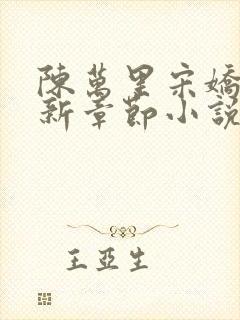 陳萬里宋嬌
新章節小說
王亞生